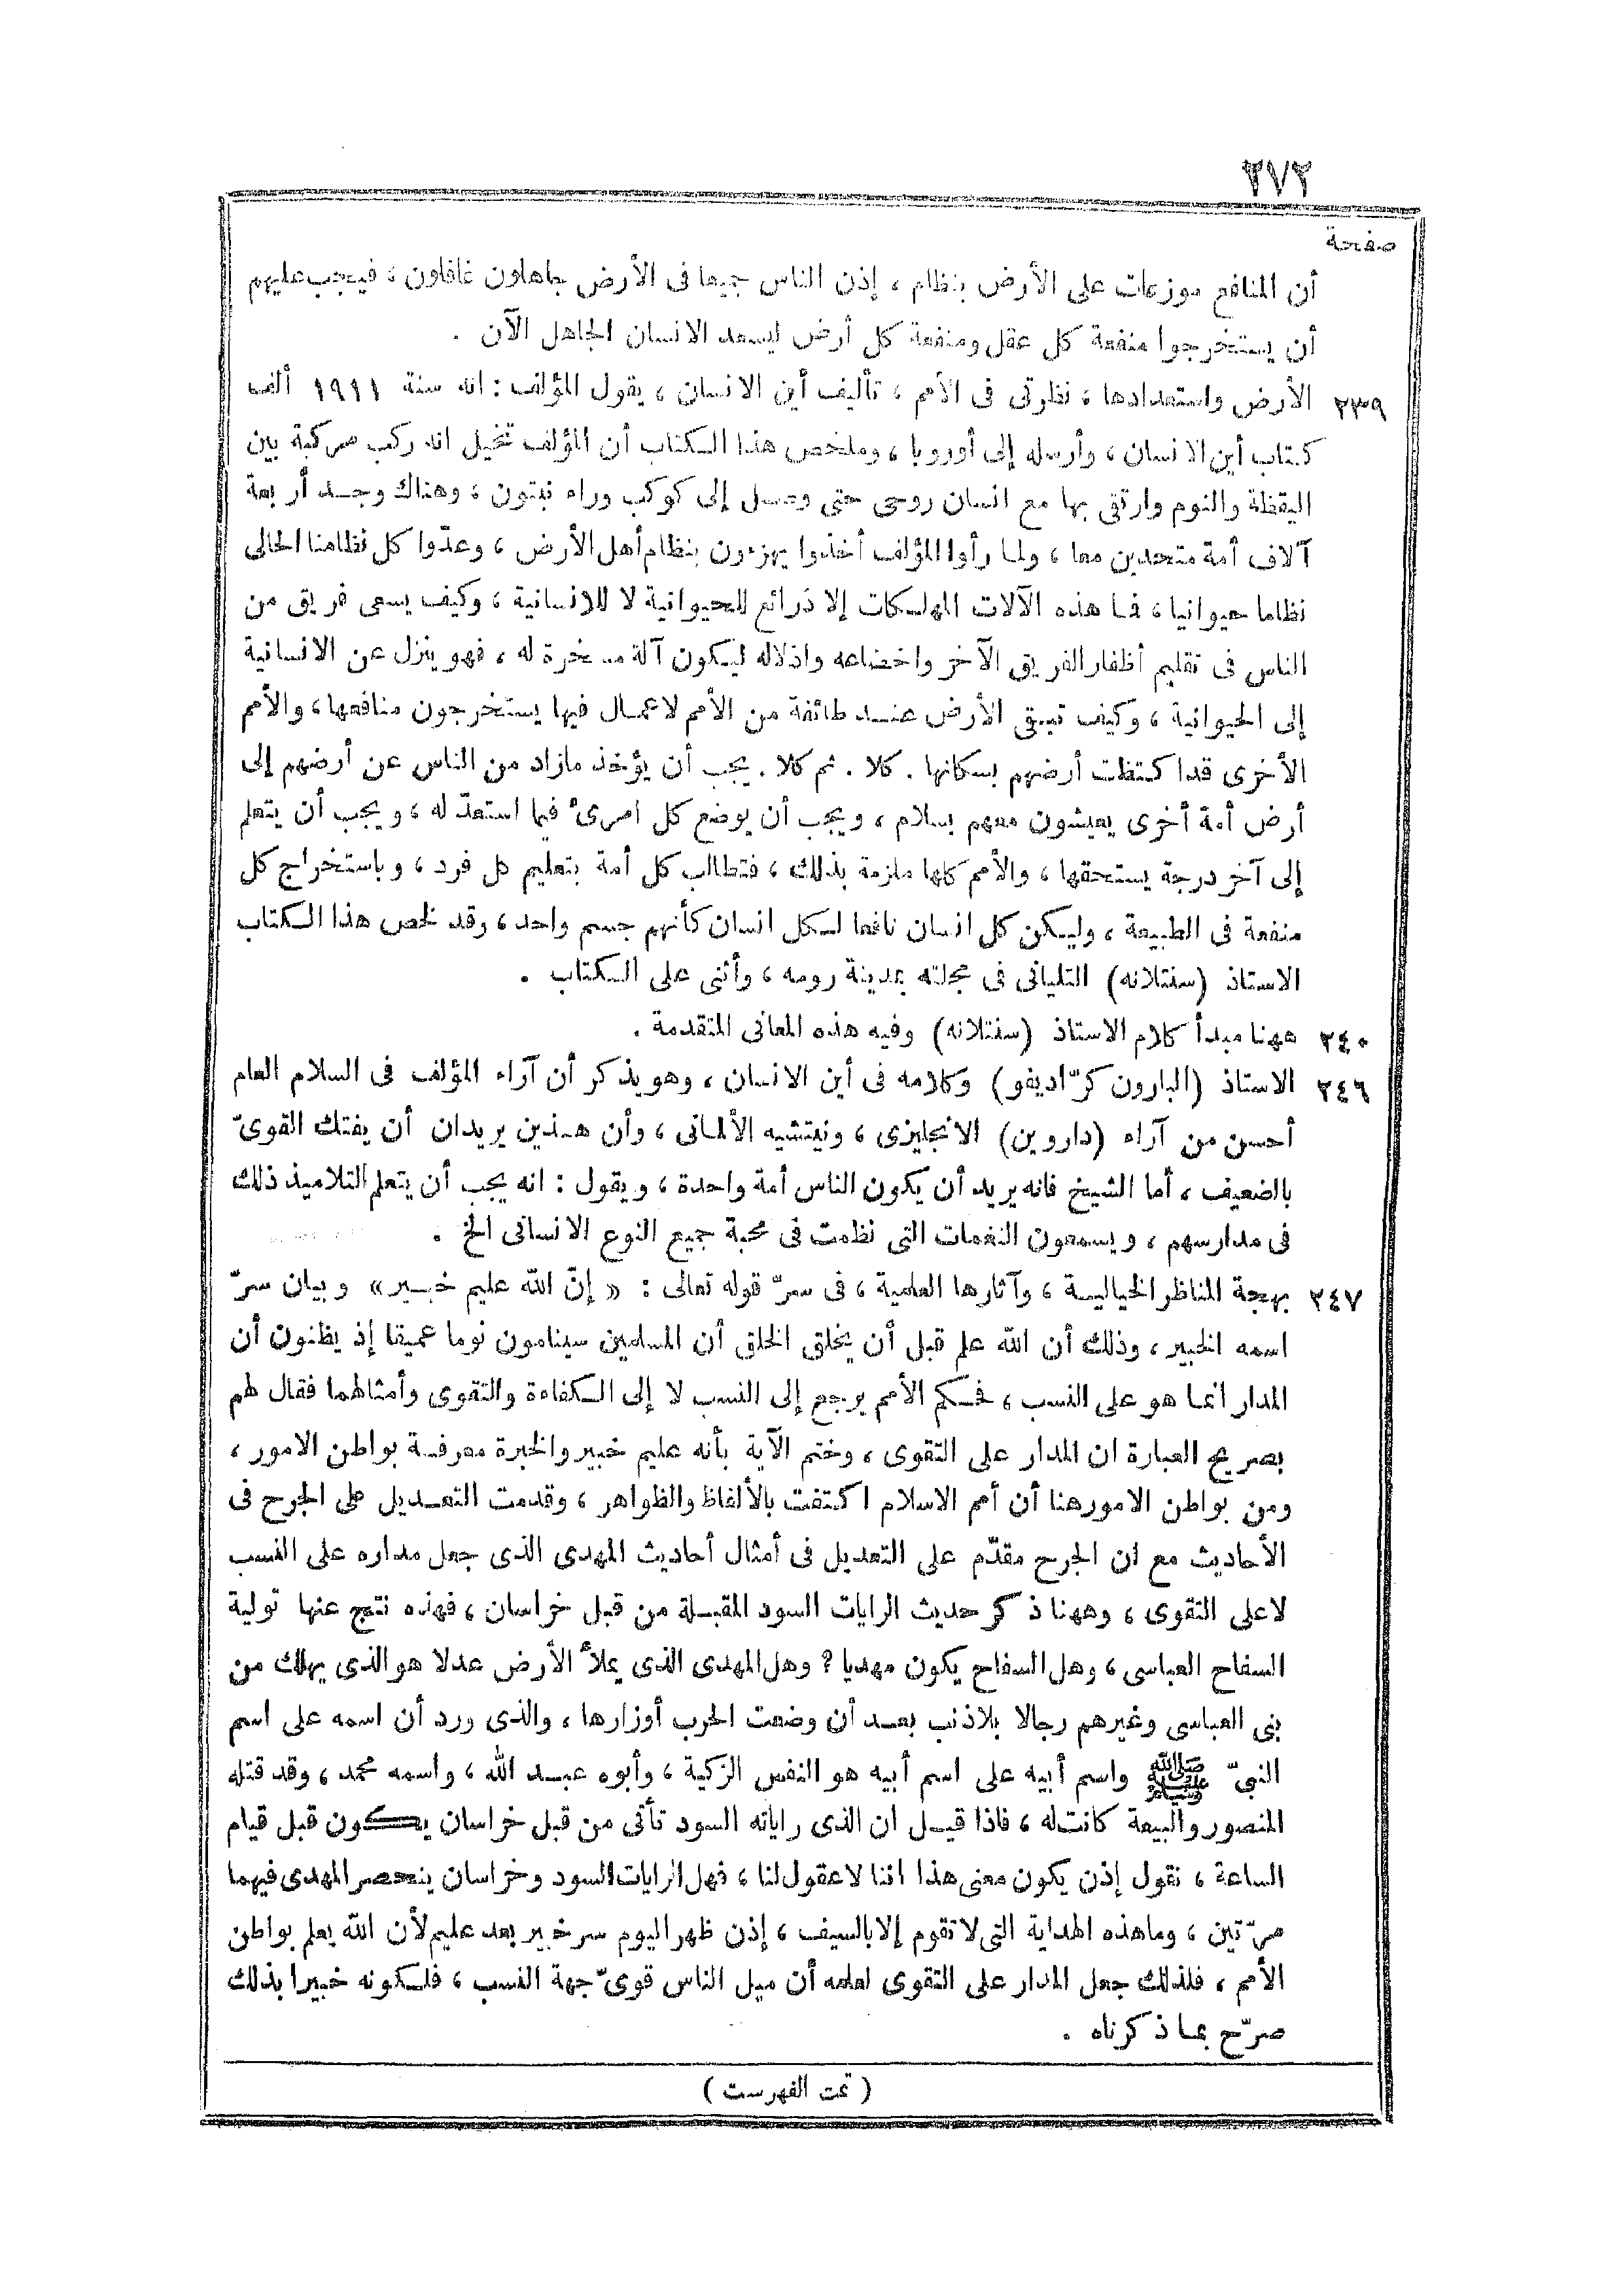 ٢٧٢
صفحة
أن المنافع موزعات على الأرض بنظام ، إذن الناس جميعا فى الأرض جاهلون غافلون ، فيجب عليهم
أن يستخرجوا منفعة كل عقل ومنفعة كل أرض ليسعد الانسان الجاهل الآن .
٢٣٩ الأرض واستعدادها ، نظرتى فى الأمم ، تأليف أين الانسان ، يقول المؤلف : انه سنة ١٩١١ ألف
كتاب أين الانسان ، وأرسله إلى أوروبا ، وملخص هذا الكتاب أن المؤلف تخيل انه ركب مركبة بين
اليقظة والنوم وارتقى بها مع انسان روحى حتى وصل إلى كوكب وراء نبتون ، وهناك وجد أربعة
آلاف أمة متحدين معا ، ولما رأوا المؤلف أخذوا يهزءون بنظام أهل الأرض ، وعدّوا كل نظامنا الحالى
نظاما حيوانيا ، فما هذه الآلات المهلكات إلا ذرائع للحيوانية لا للانسانية ، وكيف يسعى فريق من
الناس فى تقليم أظفار الفريق الآخر واخضاعه واذلاله ليكون آلة مسخرة له ، فهو ينزل عن الانسانية
إلى الحيوانية ، وكيف تبقى الأرض عند طائفة من الأمم لا عمال فيها يستخرجون منافعها ، والأمم
الأخرى قد اكتظت أرضهم بسكانها . كلا . ثم كلا . يجب أن يؤخذ مازاد من الناس عن أرضهم إلى
أرض أمة أخرى يعيشون معهم بسلام ، ويجب أن يوضع كل امرئ فيما استعدّ له ، ويجب أن يتعلم
إلى آخر درجة يستحقها ، والأمم كلها ملزمة بذلك ، فتطالب كل أمة بتعليم كل فرد ، وباستخراج كل
منفعة فى الطبيعة ، وليكن كل انسان نافعا لكل انسان كأنهم جسم واحد ، وقد لخص هذا الكتاب
الاستاذ (سنتلانه) التليانى فى مجلته بمدينة رومه ، وأثنى على الكتاب .
٢٤٠ ههنا مبدأ كلام الاستاذ (سنتلانه) وفيه هذه المعانى المتقدمة .
٢٤٦ الاستاذ (البارون كرّاديفو) وكلامه فى أين الانسان ، وهو يذكر أن آراء المؤلف فى السلام العام
أحسن من آراء (داروين) الانجليزى ، ونيتشيه الألمانى ، وأن هذين يريدان أن يفتك القوىّ
بالضعيف ، أما الشيخ فانه يريد أن يكون الناس أمة واحدة ، ويقول : انه يجب أن يتعلم التلاميذ ذلك
فى مدارسهم ، ويسمعون النغمات التى نظمت فى محبة جميع النوع الانسانى الخ .
٢٤٧ بهجة المناظر الخيالية ، وآثارها العلمية ، فى سرّ قوله تعالى : « إنّ الله عليم خبير » وبيان سرّ
اسمه الخبير ، وذلك أن الله علم قبل أن يخلق الخلق أن المسلمين سينامون نوما عميقا إذ يظنون أن
المدار انما هو على النسب ، فحكم الأمم يرجع إلى النسب لا إلى الكفاءة والتقوى وأمثالهما فقال لهم
بصريح العبارة ان المدار على التقوى ، وختم الآية بأنه عليم خبير والخبرة معرفة بواطن الامور ،
ومن بواطن الامور هنا أن أمم الاسلام اكتفت بالألفاظ والظواهر ، وقدمت التعديل على الجرح فى
الأحاديث مع ان الجرح مقدّم على التعديل فى أمثال أحاديث المهدى الذى جعل مداره على النسب
لا على التقوى ، وههنا ذكر حديث الرايات السود المقبلة من قبل خراسان ، فهذه نتج عنها تولية
السفاح العباسى ، وهل السفاح يكون مهديا ? وهل المهدى الذى يملأ الأرض عدلا هو الذى يهلك من
بنى العباسى وغيرهم رجالا بلا ذنب بعد أن وضعت الحرب أوزارها ، والذى ورد أن اسمه على اسم
النبىّ ﷺ واسم أبيه على اسم أبيه هو النفس الزكية ، وأبوه عبد الله ، واسمه محمد ، وقد قتله
المنصور والبيعة كانت له ، فاذا قيل ان الذى راياته السود تأتى من قبل خراسان يكون قبل قيام
الساعة ، نقول إذن يكون معنى هذا اننا لا عقول لنا ، فهل الرايات السود وخراسان ينحصر المهدى فيهما
مرّتين ، وماهذه الهداية التى لا تقوم إلا بالسيف ، إذن ظهر اليوم سر خبير بعد عليم لأن الله يعلم بواطن
الأمم ، فلذلك جعل المدار على التقوى لعلمه أن ميل الناس قوىّ جهة النسب ، فلكونه خبيرا بذلك
صرّح بما ذكرناه .
( تمت الفهرست )